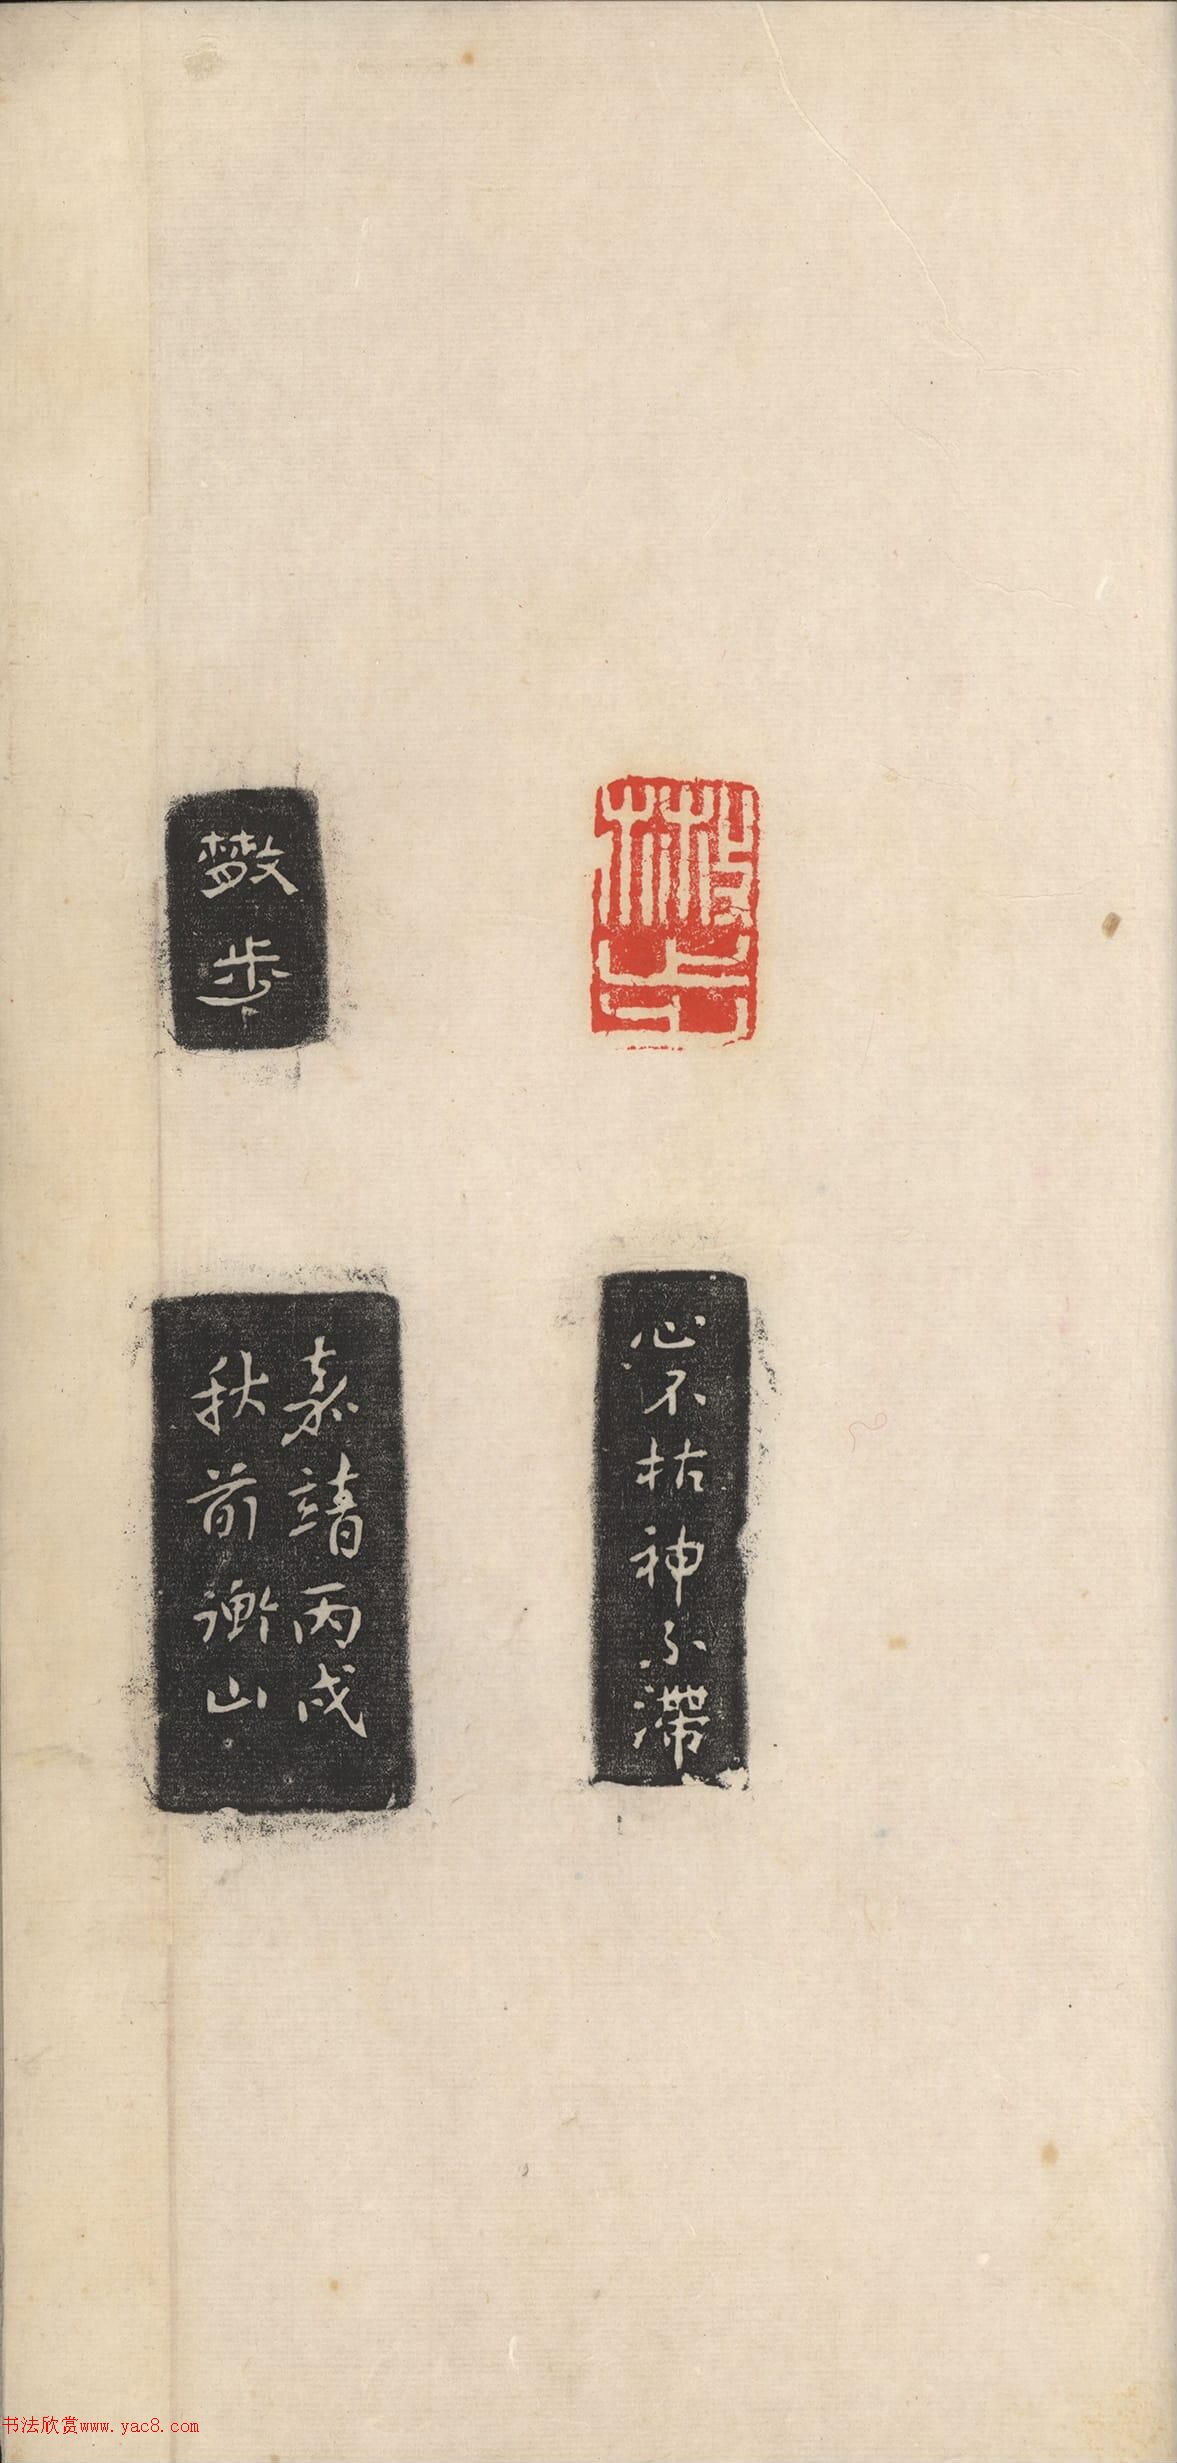 散步
心不枯神不滞
嘉靖丙戌
秋前衡山
散步
书法欣赏www.yac8.com